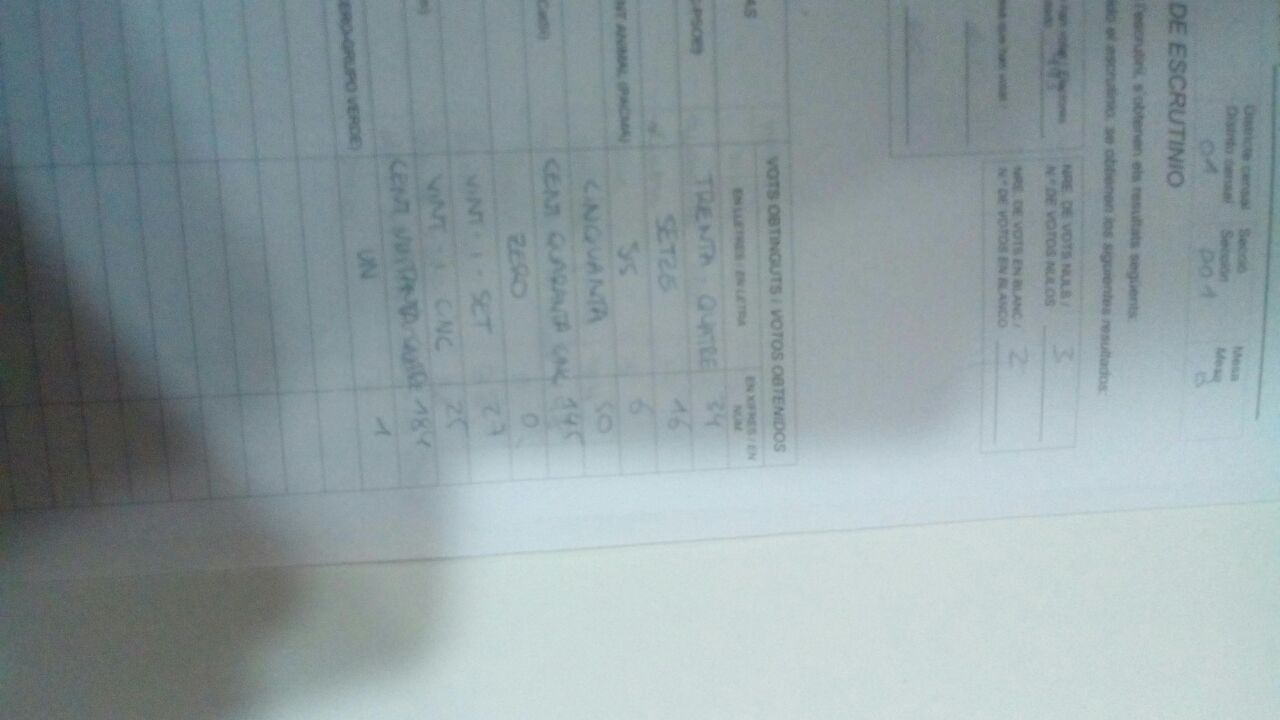 Districte censal Secció Mesa
Distrito censal Sección Mesa
01 001 B
DE ESCRUTINIO
l'escrutini, s'obtenen els resultats següents:
ido el escrutinio, se obtienen los siguientes resultados:
han votat / Electores
NRE. DE VOTS NULS / 3
N.º DE VOTOS NULOS
NRE. DE VOTS EN BLANC / 2
que han votat /
N.º DE VOTOS EN BLANCO
VOTS OBTINGUTS / VOTOS OBTENIDOS
AS
EN LLETRES / EN LETRA EN XIFRES / EN
NÚM.
-PSOE) TRENTA - QUATRE 34
SETZE 16
NT ANIMAL (PACMA) SIS 6
CINQUANTA 50
CatSí) CENT QUARANTA CINC 145
ZERO 0
VINT - I - SET 27
VINT - I - CINC 25
CENT VUITANTA-QUATRE 184
ERO-GRUPO VERDE) UN 1